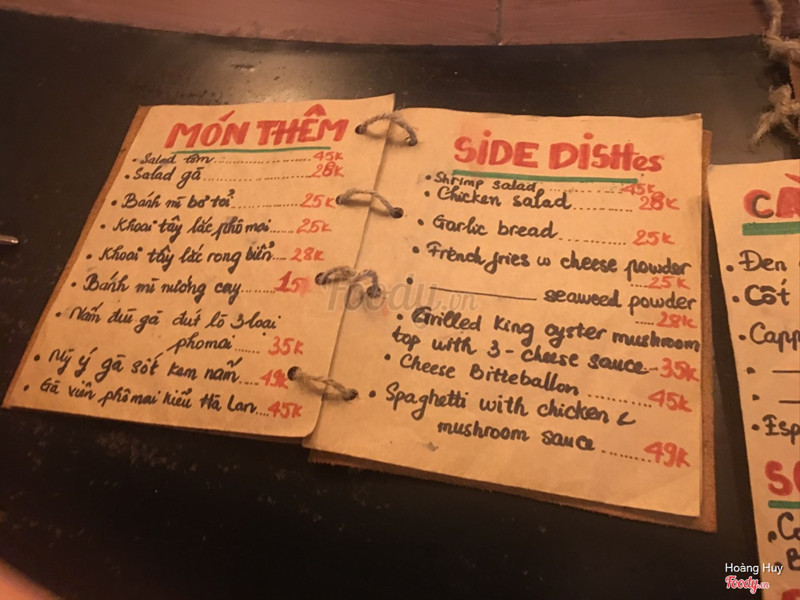 MÓN THÊM
• Salad tôm ........ 45k
• Salad gà ........ 28k
• Bánh mì bơ tỏi ...... 25k
• Khoai tây lắc phô mai ..... 25k
• Khoai tây lắc rong biển .... 28k
• Bánh mì nướng cay ....... 15k
• Nấm đùi gà đút lò 3 loại
phomai ..... 35k
• Mỳ ý gà sốt kem nấm .... 49k
• Gà viên phô mai kiểu Hà Lan ... 45k
SIDE DISHes
• Shrimp salad ........ 45k
• Chicken salad ........ 28k
• Garlic bread ........ 25k
• French fries w cheese powder
25k
• ———— seaweed powder
28k
• Grilled King oyster mushroom
top with 3 - cheese sauce 35k
• Cheese Bitteballon
45k
• Spaghetti with chicken &
mushroom sauce ...... 49k
• Đen
• Cốt
• Capp
• —
• —
• Esp
Foody.vn
Hoàng Huy
Foody.vn